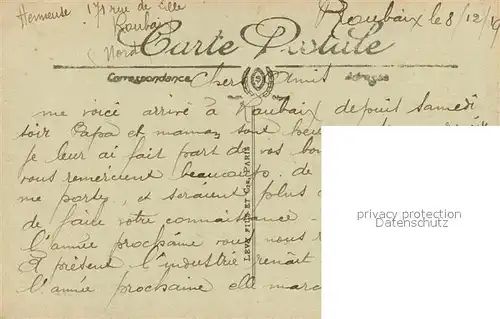 Henneuse 171 rue de Lille
Roubaix
(Nord)
Roubaix le 8/12/19
Carte Postale
Correspondance
Adresse
Chers Amis
me voici arrivé à Roubaix depuis samedi
soir Papa et maman sont
je leur ai fait part de vos
vous remercient beaucoup. de
me portez, et seraient plus
de faire votre connaissance
l'année prochaine vous nous
A présent l'industrie renaît
l'année prochaine elle
LEVY FILS ET Cie, PARIS
privacy protection
Datenschutz